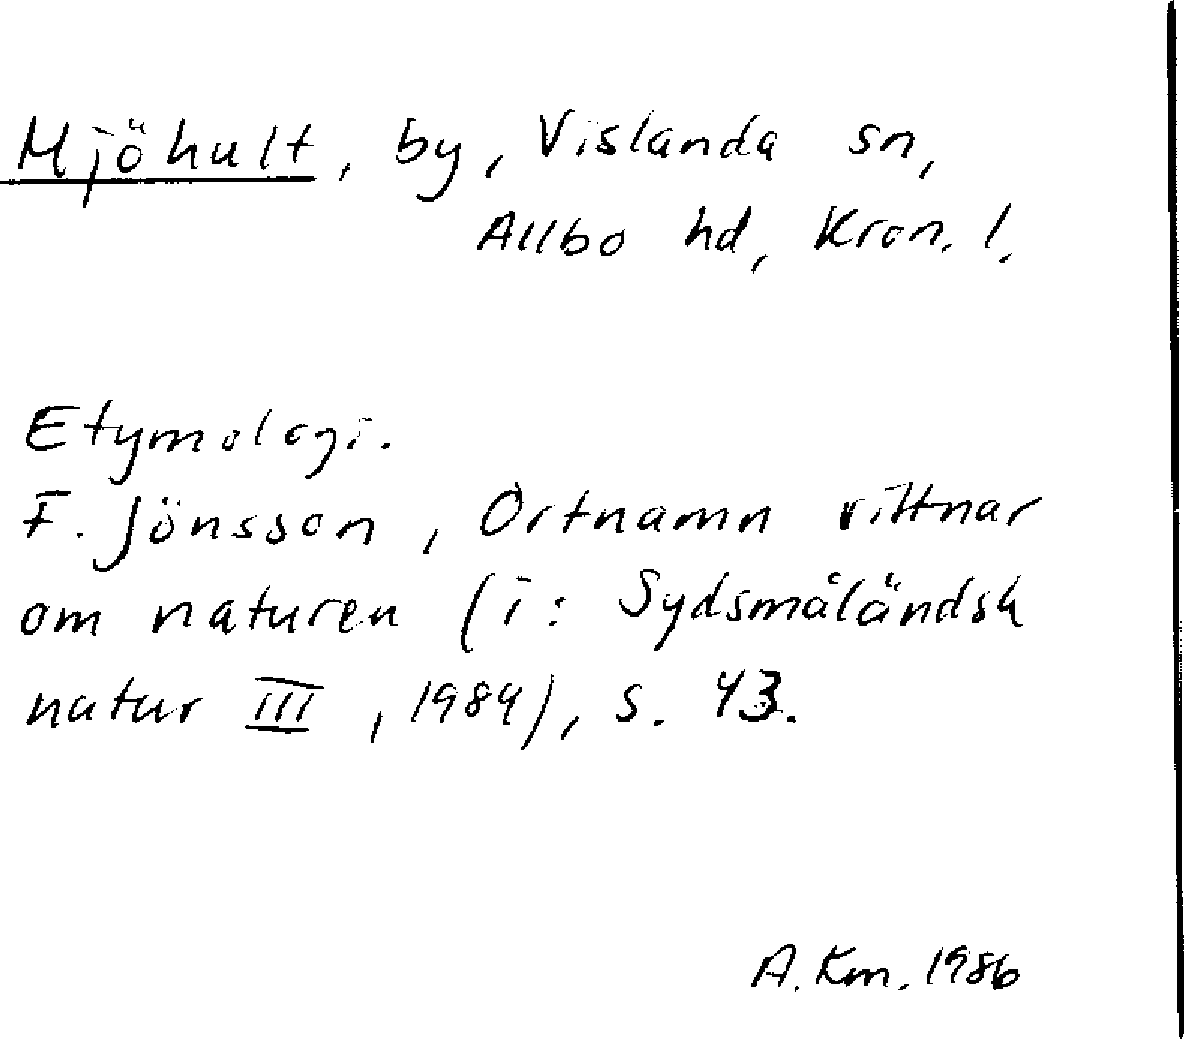 Mjöhult, by, Vislanda sn,
Allbo hd, Kron. l.
Etymologi.
F. Jönsson, Ortnamn vittnar
om naturen (i: Sydsmåländsk
natur III, 1984), s. 43.
A. Km. 1986